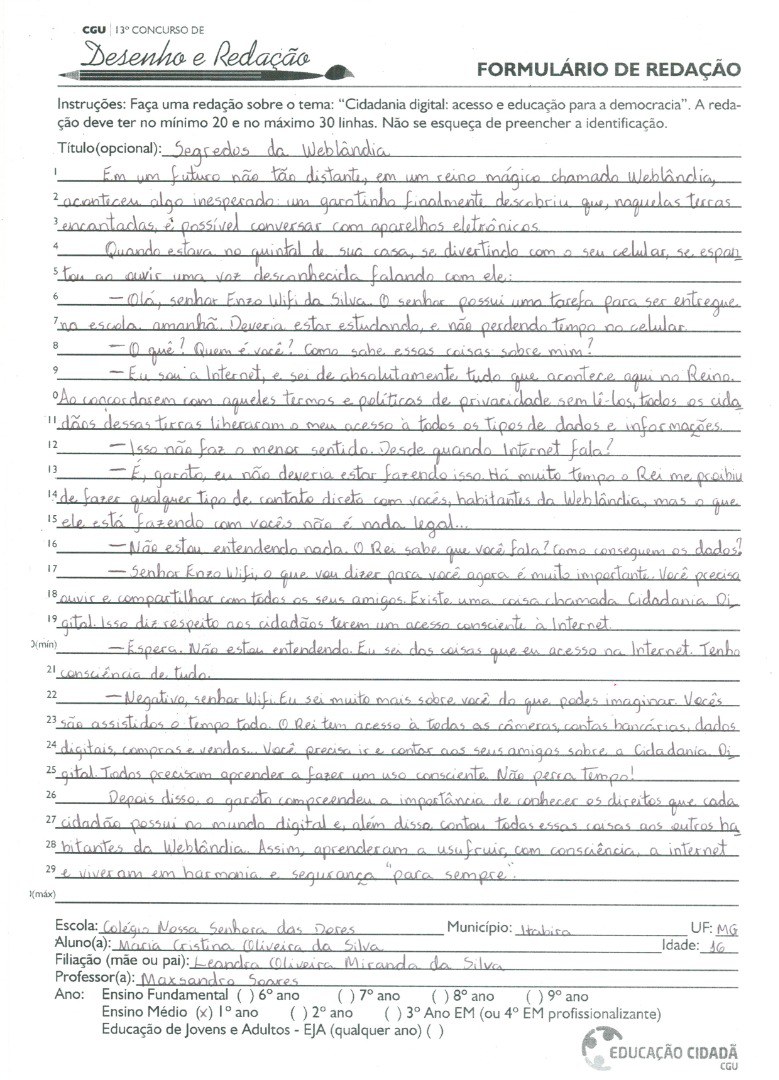 CGU 13º CONCURSO DE
Desenho e Redação
FORMULÁRIO DE REDAÇÃO
Instruções: Faça uma redação sobre o tema: "Cidadania digital: acesso e educação para a democracia". A reda-
ção deve ter no mínimo 20 e no máximo 30 linhas. Não se esqueça de preencher a identificação.
Título(opcional): Segredos da Weblândia
1 Em um futuro não tão distante, em um reino mágico chamado Weblândia,
2 aconteceu algo inesperado: um garotinho finalmente descobriu que, naquelas terras
3 encantadas, é possível conversar com aparelhos eletrônicos.
4 Quando estava no quintal de sua casa, se divertindo com o seu celular, se espan
5 tou ao ouvir uma voz desconhecida falando com ele:
6 — Olá, senhor Enzo Wifi da Silva. O senhor possui uma tarefa para ser entregue
7 na escola amanhã. Deveria estar estudando, e não perdendo tempo no celular.
8 — O quê? Quem é você? Como sabe essas coisas sobre mim?
9 — Eu sou a Internet, e sei de absolutamente tudo que acontece aqui no Reino.
0 Ao concordarem com aqueles termos e políticas de privacidade sem lê-los, todos os cida
11 dãos dessas terras liberaram o meu acesso à todos os tipos de dados e informações.
12 — Isso não faz o menor sentido. Desde quando Internet fala?
13 — É, garoto, eu não deveria estar fazendo isso. Há muito tempo o Rei me proibiu
14 de fazer qualquer tipo de contato direto com vocês, habitantes da Weblândia, mas o que
15 ele está fazendo com vocês não é nada legal...
16 — Não estou entendendo nada. O Rei sabe que você fala? Como conseguem os dados?
17 — Senhor Enzo Wifi, o que vou dizer para você agora é muito importante. Você precisa
18 ouvir e compartilhar com todos os seus amigos. Existe uma coisa chamada Cidadania Di
19 gital. Isso diz respeito aos cidadãos terem um acesso consciente à Internet.
0(mín) — Espera. Não estou entendendo. Eu sei das coisas que eu acesso na Internet. Tenho
21 consciência de tudo.
22 — Negativo, senhor Wifi. Eu sei muito mais sobre você do que podes imaginar. Vocês
23 são assistidos o tempo todo. O Rei tem acesso à todas as câmeras, contas bancárias, dados
24 digitais, compras e vendas... Você precisa ir e contar aos seus amigos sobre a Cidadania Di
25 gital. Todos precisam aprender a fazer um uso consciente. Não perca tempo!
26 Depois disso, o garoto compreendeu a importância de conhecer os direitos que cada
27 cidadão possui no mundo digital e, além disso, contou todas essas coisas aos outros ha
28 bitantes da Weblândia. Assim, aprenderam a usufruir, com consciência, a internet
29 e viveram em harmonia e segurança "para sempre".
(máx)
Escola: Colégio Nossa Senhora das Dores Município: Itabira UF: MG
Aluno(a): Maria Cristina Oliveira da Silva Idade: 16
Filiação (mãe ou pai): Leandra Oliveira Miranda da Silva
Professor(a): Maxsandro Soares
Ano: Ensino Fundamental ( ) 6º ano ( ) 7º ano ( ) 8º ano ( ) 9º ano
Ensino Médio (x) 1º ano ( ) 2º ano ( ) 3º Ano EM (ou 4º EM profissionalizante)
Educação de Jovens e Adultos - EJA (qualquer ano) ( )
EDUCAÇÃO CIDADÃ
CGU